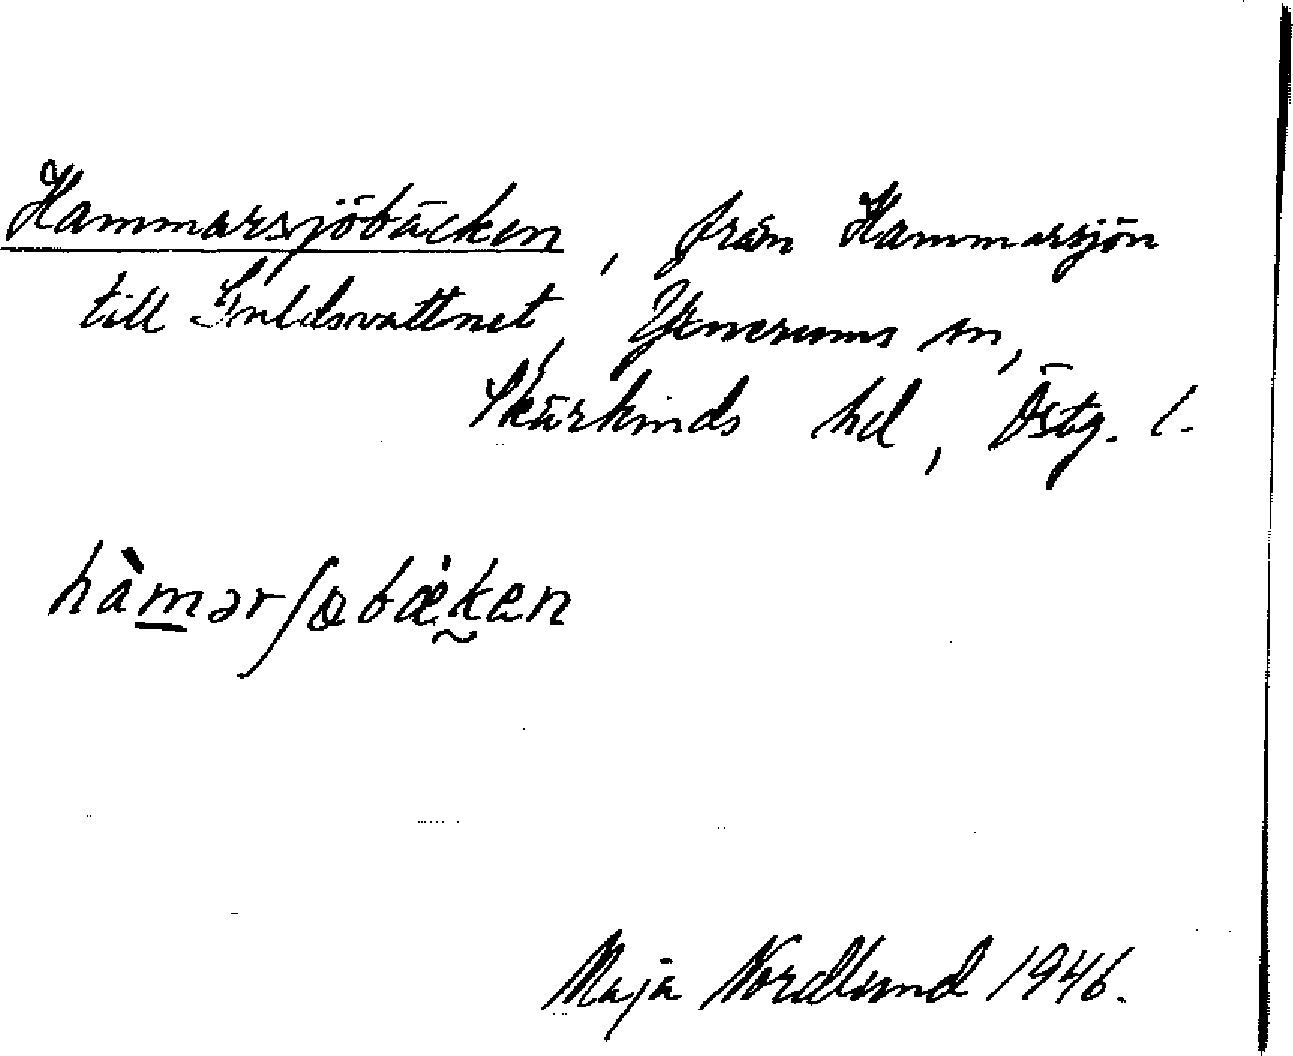 Hammarsjöbäcken, från Hammarsjön
till Guldsvattnet, Yxnerums sn,
Skärkinds hd, Östg. l.
hàmərʃɷbæ̀ken
Maja Nordlund 1946.